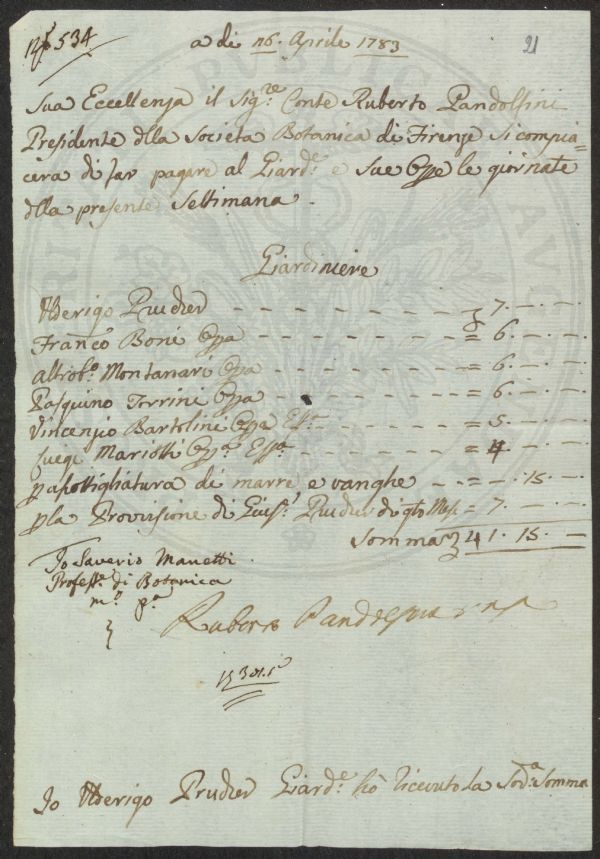 N.º 534
a di 26. Aprile 1783
21
Sua Eccellenza il Sig.re Conte Ruberto Pandolfini
Presidente dlla Società Botanica di Firenze si compia=
cerà di far pagare al Giard.e e sue Oppe le giornate
dlla presente Settimana.
Giardiniere
Ulderigo Prucker - - - - - - 7. -. -
Franco Boni Oppa - - - - - - = 6. -. -
altro Montanari Oppa - - - - - = 6. -. -
Pasquino Terrini Oppa - - - - - = 6. -. -
Vincenzio Bartolini Oppa - - - = 5. -. -
Mariotti - - - - - = 4 -. -
di marre e vanghe - - = -. 15. -
p la Provisione di Prucker di qto Mese = 7. -. -
Somma 41. 15. -
Io Saverio Manetti
Profess.e di Botanica
m.o p.a
Ruberto Pandolfini
Io Ulderigo Prucker Giard.e hò ricevuto la Sod.a Somma